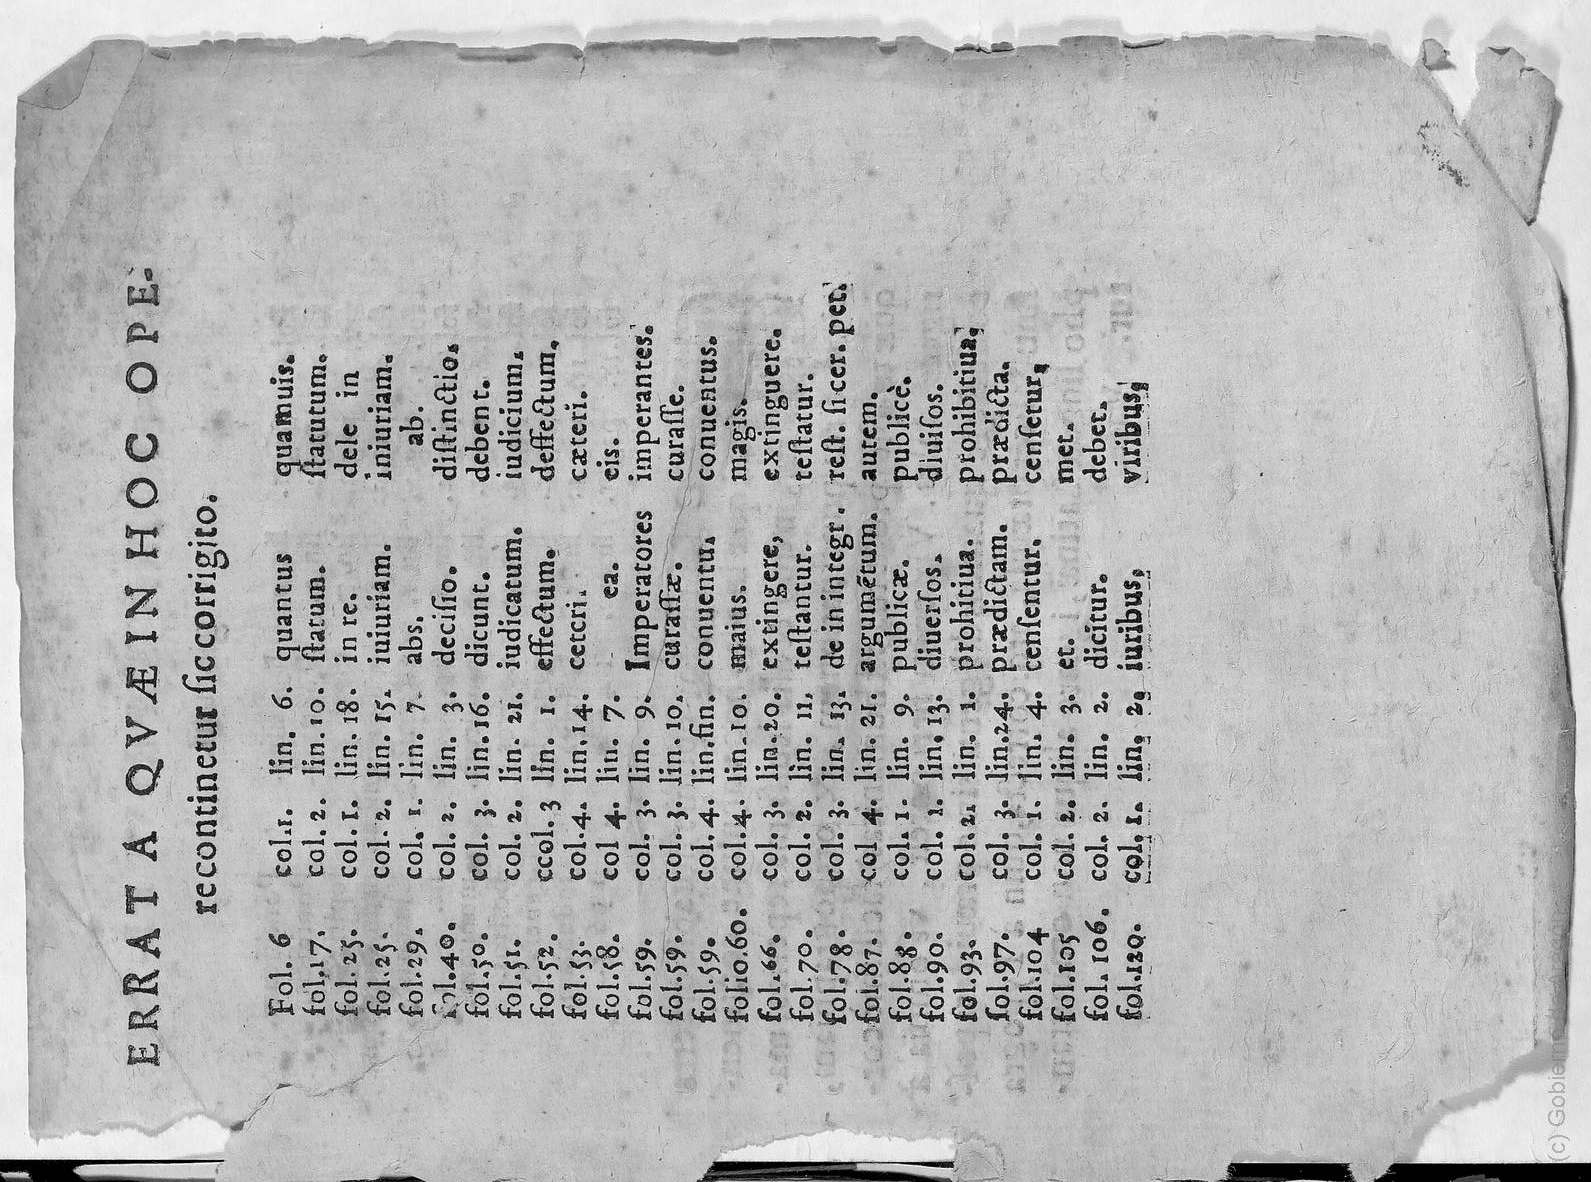 ERRATA QVÆ IN HOC OPE-
re continetur sic corrigito.
Fol. 6 col.1. lin. 6. quantus quamuis.
fol.17. col. 2. lin. 10. ſtatum. ſtatutum.
fol.25. col. 1. lin. 18. in re. dele in
fol.25. col. 2. lin. 15. iuiuriam. iniuriam.
fol.29. col. 1. lin. 7. abs. ab.
fol.40. col. 2. lin. 3. deciſio. diſtinctio.
fol.50. col. 3. lin. 16. dicunt. debent.
fol.51. col. 2. lin. 21. iudicatum. iudicium.
fol.52. ccol. 3 lin. 1. effectum. deffectum.
fol.53. col. 4. lin. 14. ceteri. cæteri.
fol.58. col 4. lin. 7. ea. eis.
fol.59. col. 3. lin. 9. Imperatores imperantes.
fol.59. col. 3. lin. 10. curaſſæ. curaſſe.
fol.59. col. 4. lin.fin. conuentu. conuentus.
folio.60. col. 4. lin. 10. maius. magis.
fol.66. col. 3. lin.20. extingere, extinguere.
fol.70. col. 2. lin. 11. teſtantur. teſtatur.
fol.78. col. 3. lin. 13. de in integr. reſt. ſi cer. pet.
fol.87. col 4. lin. 21. argumẽtum. autem.
fol.88. col. 1. lin. 9. publicæ. publicè.
fol.90. col. 1. lin. 13. diuerſos. diuiſos.
fol.93. col. 2. lin. 1. prohitiua. prohibitiua.
fol.97. col. 3. lin.24. prædictam. prædicta.
fol.104 col. 1. lin. 4. cenſentur. cenſetur,
fol.105 col. 2. lin. 3. et. met.
fol. 106. col. 2. lin. 2. dicitur. debet.
fol.120. col. 1. lin. 2. iuribus, viribus,